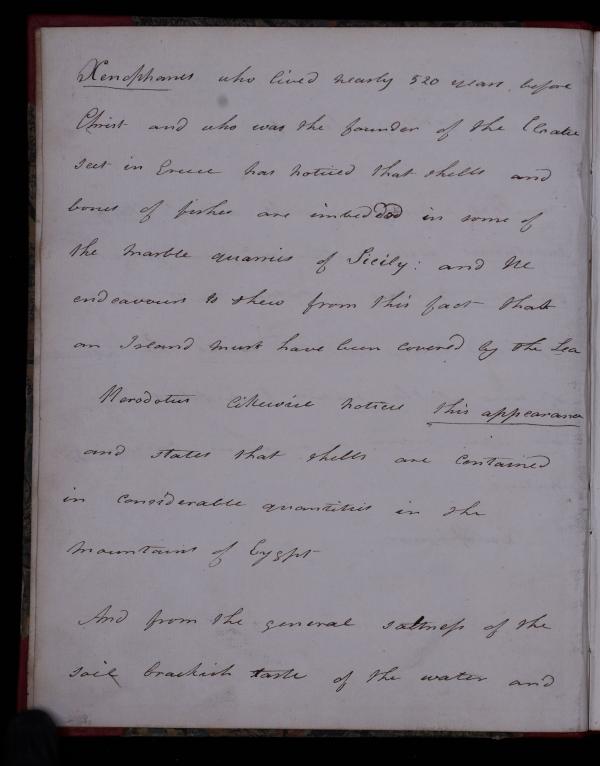 Xenophanes who lived nearly 520 years before
Christ and who was the founder of the Eleatic
sect in Greece has noticed that shells and
bones of fishes are imbedded in some of
the marble quarries of Sicily: and He
endeavours to shew from this fact that
an Island must have been covered by the Sea
Herodotus likewise notices this appearance
and states that shells are contained
in considerable quantities in the
mountains of Eygpt
And from the general saltness of the
soil brackish taste of the water and